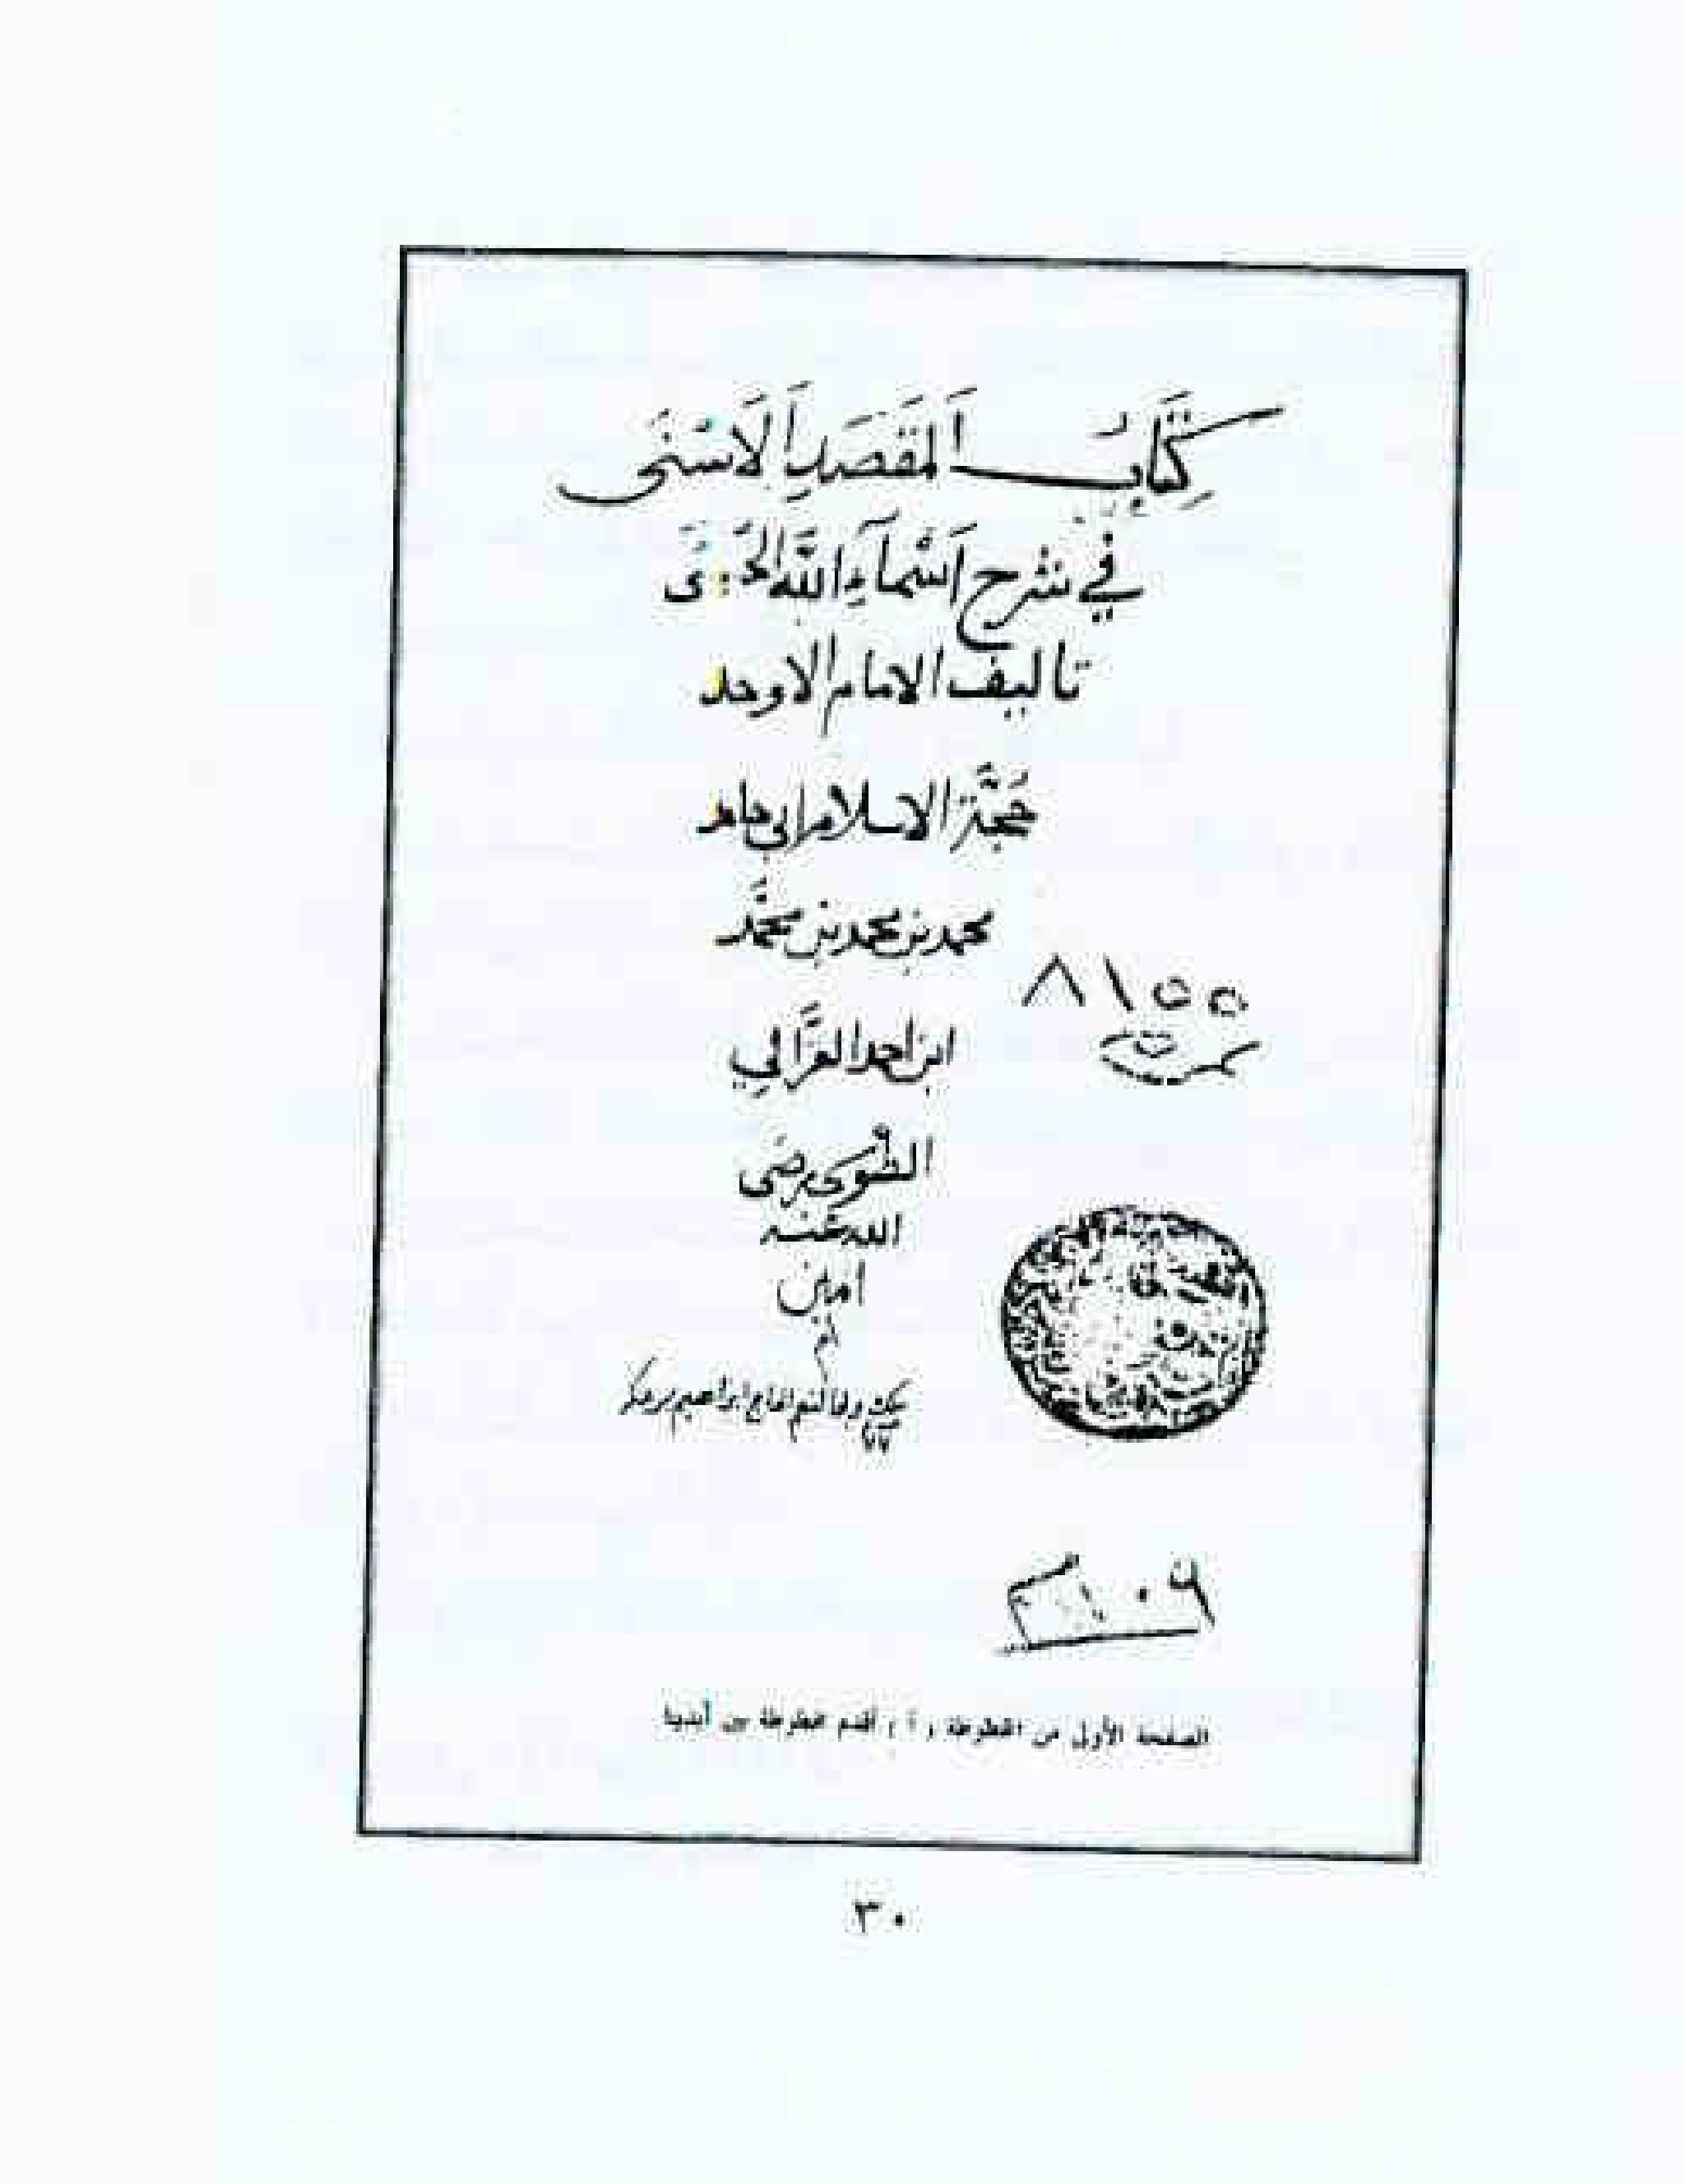 كِتَابُ المَقصَدِ الاَسْنَى
في شرح اَسْمآءِ اللَّه الحُسنى
تاليف الامام الاوحد
حُجَّة الاسلام ابي حامد
محمد بن محمد بن محمَّد
ابن احمد الغزَّالي
الطُّوسي رضى
الله عنه
امين
٨١٥٥
الحاج ابراهيم
الصفحة الأولى من المخطوطة ( أ ) أقدم مخطوطة بين أيدينا
٣٠